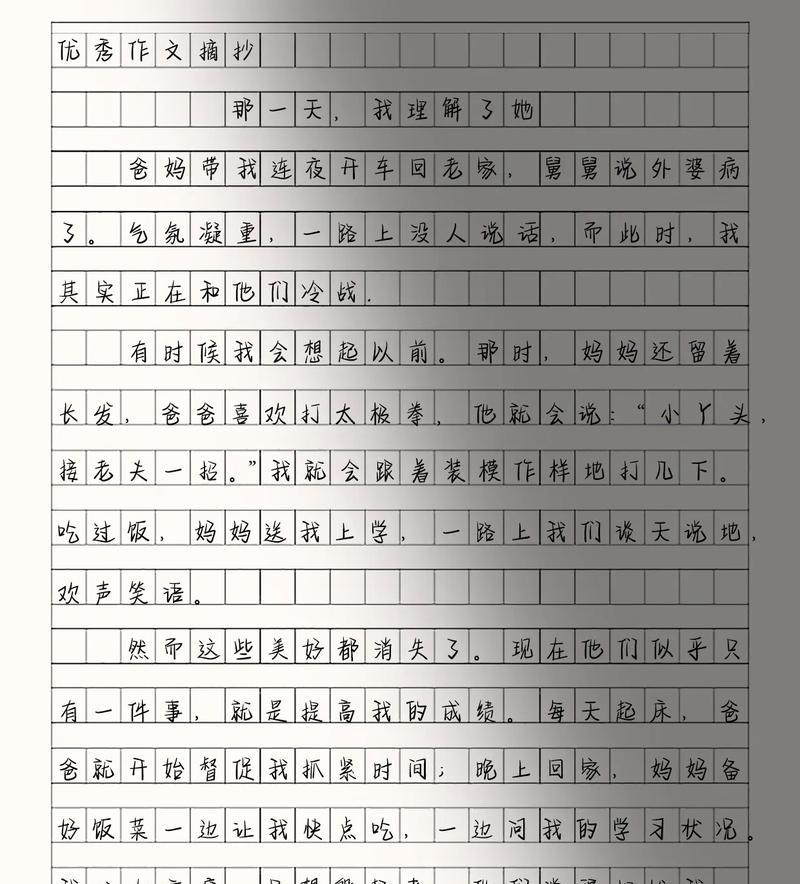 优秀作文摘抄
那一天，我理解了她
爸妈带我连夜开车回老家，舅舅说外婆病
了。气氛凝重，一路上没人说话，而此时，我
其实正在和他们冷战.
有时候我会想起以前。那时，妈妈还留着
长发，爸爸喜欢打太极拳，他就会说：“小丫头，
接老夫一招。”我就会跟着装模作样地打几下。
吃过饭，妈妈送我上学，一路上我们谈天说地，
欢声笑语。
然而这些美好都消失了。现在他们似乎只
有一件事，就是提高我的成绩。每天起床，爸
爸就开始督促我抓紧时间；晚上回家，妈妈备
好饭菜一边让我快点吃，一边问我的学习状况。